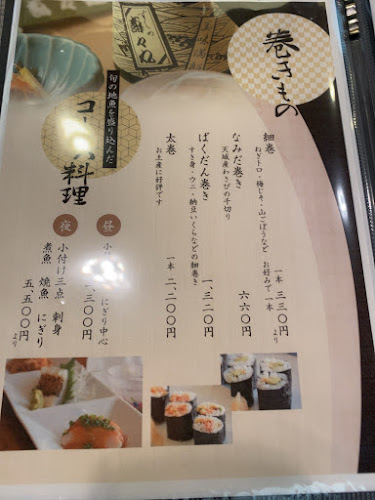 巻きもの
細巻
ねぎトロ・梅じそ・山ごぼうなど お好みで一本
一本 三三〇円より
なみだ巻き
天城産わさびの千切り
六六〇円
ばくだん巻き
すき身・ウニ・納豆いくらなどの細巻き
一、三二〇円
太巻
お土産に好評です
一本 二、二〇〇円
旬の地魚を盛り込んだ
コース料理
昼
にぎり中心
三〇〇円
夜
小付け三点、刺身
煮魚 焼魚 にぎり
五、五〇〇円より